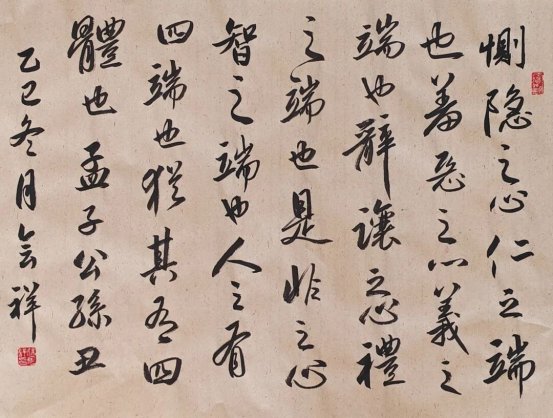 惻隐之心仁之端
也羞惡之心義之
端也辭讓之心禮
之端也是非之心
智之端也人之有
四端也猶其有四
體也孟子公孫丑
乙巳冬月会祥